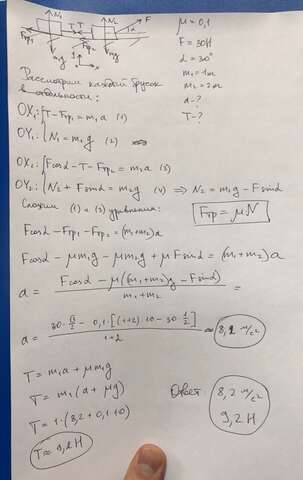 N₁ N₂ F
T T α
Fтр₁ Fтр₂
m₁g m₂g
x
μ = 0,1
F = 30Н
α = 30°
m₁ = 1кг
m₂ = 2кг
a - ?
T - ?
Рассмотрим каждый брусок
в отдельности:
OX₁: T - Fтр₁ = m₁a (1)
OY₁: N₁ = m₁g (2)
OX₂: Fcosα - T - Fтр₂ = m₂a (3)
OY₂: N₂ + Fsinα = m₂g (4) ⇒ N₂ = m₂g - Fsinα
Сложим (1) и (3) уравнения:
Fтр = μN
Fcosα - Fтр₁ - Fтр₂ = (m₁+m₂)a
Fcosα - μm₁g - μm₂g + μFsinα = (m₁+m₂)a
a = (Fcosα - μ((m₁+m₂)g - Fsinα)) / (m₁+m₂) =
a = (30·√3/2 - 0,1·[(1+2)·10 - 30·1/2]) / (1+2) ≈ 8,2 м/с²
T = m₁a + μm₁g
T = m₁(a + μg)
T = 1·(8,2 + 0,1·10)
T ≈ 9,2Н
Ответ: 8,2 м/с²
9,2 Н